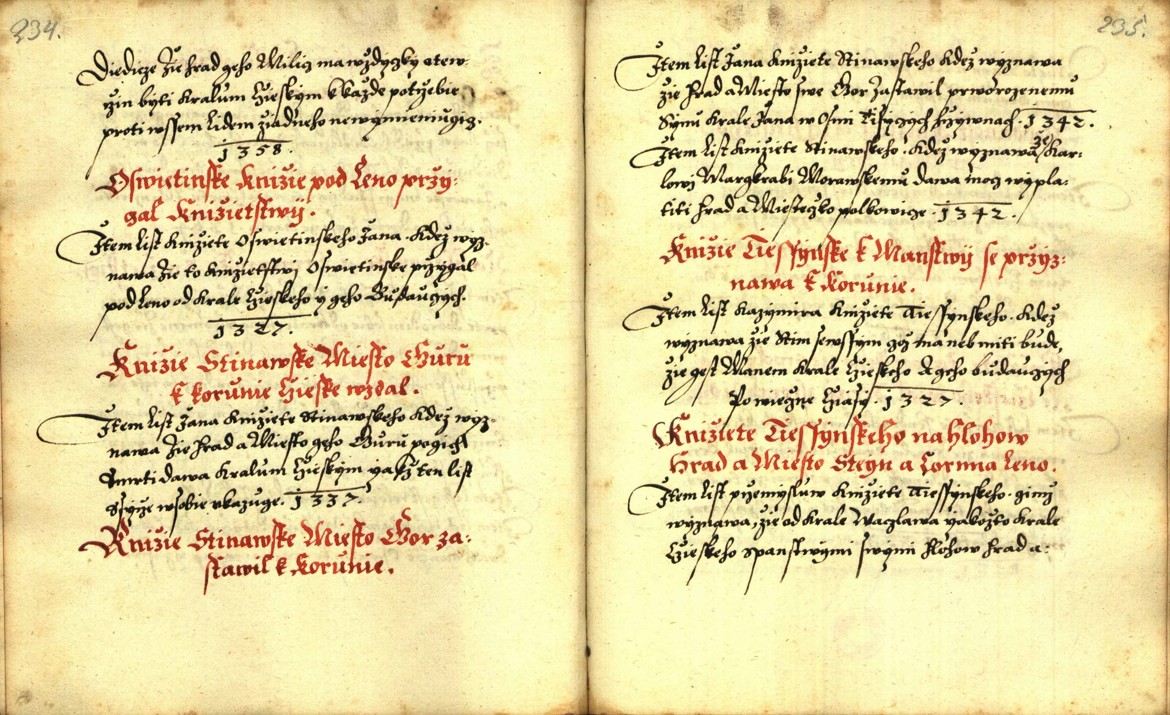 234.
Diedicze zie hrad geho Milicz ma wzdyczky otew-
rzin byti Kralum Czieskym k každe potrzebie
proti wssem lidem ziadneho newynniemugicz.
1358.
Oswietinske Knizie pod Leno przy-
gal Knizietstwij.
Item list Knižiete Oswietinskeho Jana. Kdež wyz-
nawa že to knižietstwi Oswietinske przygal
pod leno od krale Czieskeho y geho Buduczych.
1327.
Knizie Stinawske Miesto Guru
k korunie Czieske wzdal.
Item list Jana Knižiete Stinawskeho kdež wyz-
nawa zie hrad a Miesto geho Guru po gich
Smrti dawa Kralum Czieskym yakž ten list
Ssyrze w sobie vkazuge. 1337.
Knizie Stinawske Miesto Gor za-
stawil k Korunie.
235.
Item list Jana Knižiete Stinawskeho kdež wyznawa
zie hrad a Miesto swe Gor zastawil prworozenemu
Synu Krale Jana w Osmi Tisyczych hrzywnach. 1342.
Item list Knižiete Stinawskeho. kdež wyznawa že Kar-
lowi Margkrabi Morawskemu dawa mocz wypla-
titi hrad a Miesteczko polkowicze. 1342.
Knizie Tiessynske k Manstwij se przyz-
nawa k Korunie.
Item list Kazymira Knižiete Tiessynskeho. kdež
wyznawa zie s tim se wssym což ma neb miti bude,
zie gest Manem Krale Czieskeho A geho buduczych
Po wieczne Cziasy. 1327.
Knižiete Tiessynskeho na hlohow
Hrad a Miesto Steyn a Cornna leno.
Item list przemysluw Knižiete Tiessynskeho. gimž
wyznawa, zie od Krale Waczlawa yakožto Krale
Czieskeho s panstwymi swymi Hlohow hrad a: